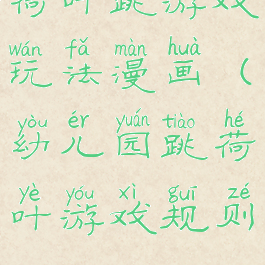 荷叶跳游戏
wán fǎ màn huà
玩法漫画（
yòu ér yuán tiào hé
幼儿园跳荷
yè yóu xì guī zé
叶游戏规则